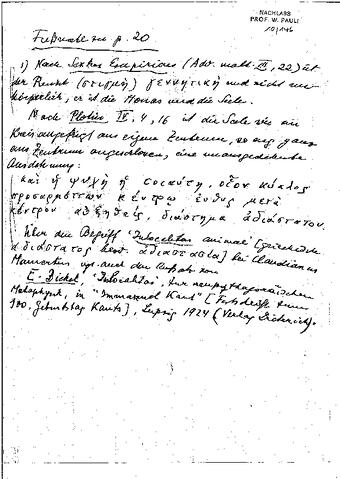 NACHLASS
PROF. W. PAULI
Fußnote zu p. 20
1) Nach Sextus Empiricus (Adv. math. III, 22) ist
der Punkt (στιγμή) γεννητική und nicht
körperlich, er ist die Monas und die Seele.
Nach Plotin IV, 4, 16 ist die Seele wie ein
Kreis angefügt an eigene Zentrum, so eng ganz
ans Zentrum angeschlossen, eine unausgedehnte
Ausdehnung:
καὶ ἡ ψυχὴ ἡ τοιαύτη, οἷον κύκλος
προσαρμόττων κέντρῳ εὐθὺς μετὰ
κέντρον αὐξηθείς, διάστημα ἀδιάστατον.
Über den Begriff Inlocalitas animae [griechisch
ἀδιάστατος bezw. ἀδιαστασία] bei Claudianus
Mamertus vgl. auch den Aufsatz von
E. Dickel, "Inlocalitas", zur neupythagoreischen
Metaphysik, in "Immanuel Kant" [Festschrift zum
200. Geburtstag Kants], Leipzig 1924 (Verlag Dieterich).